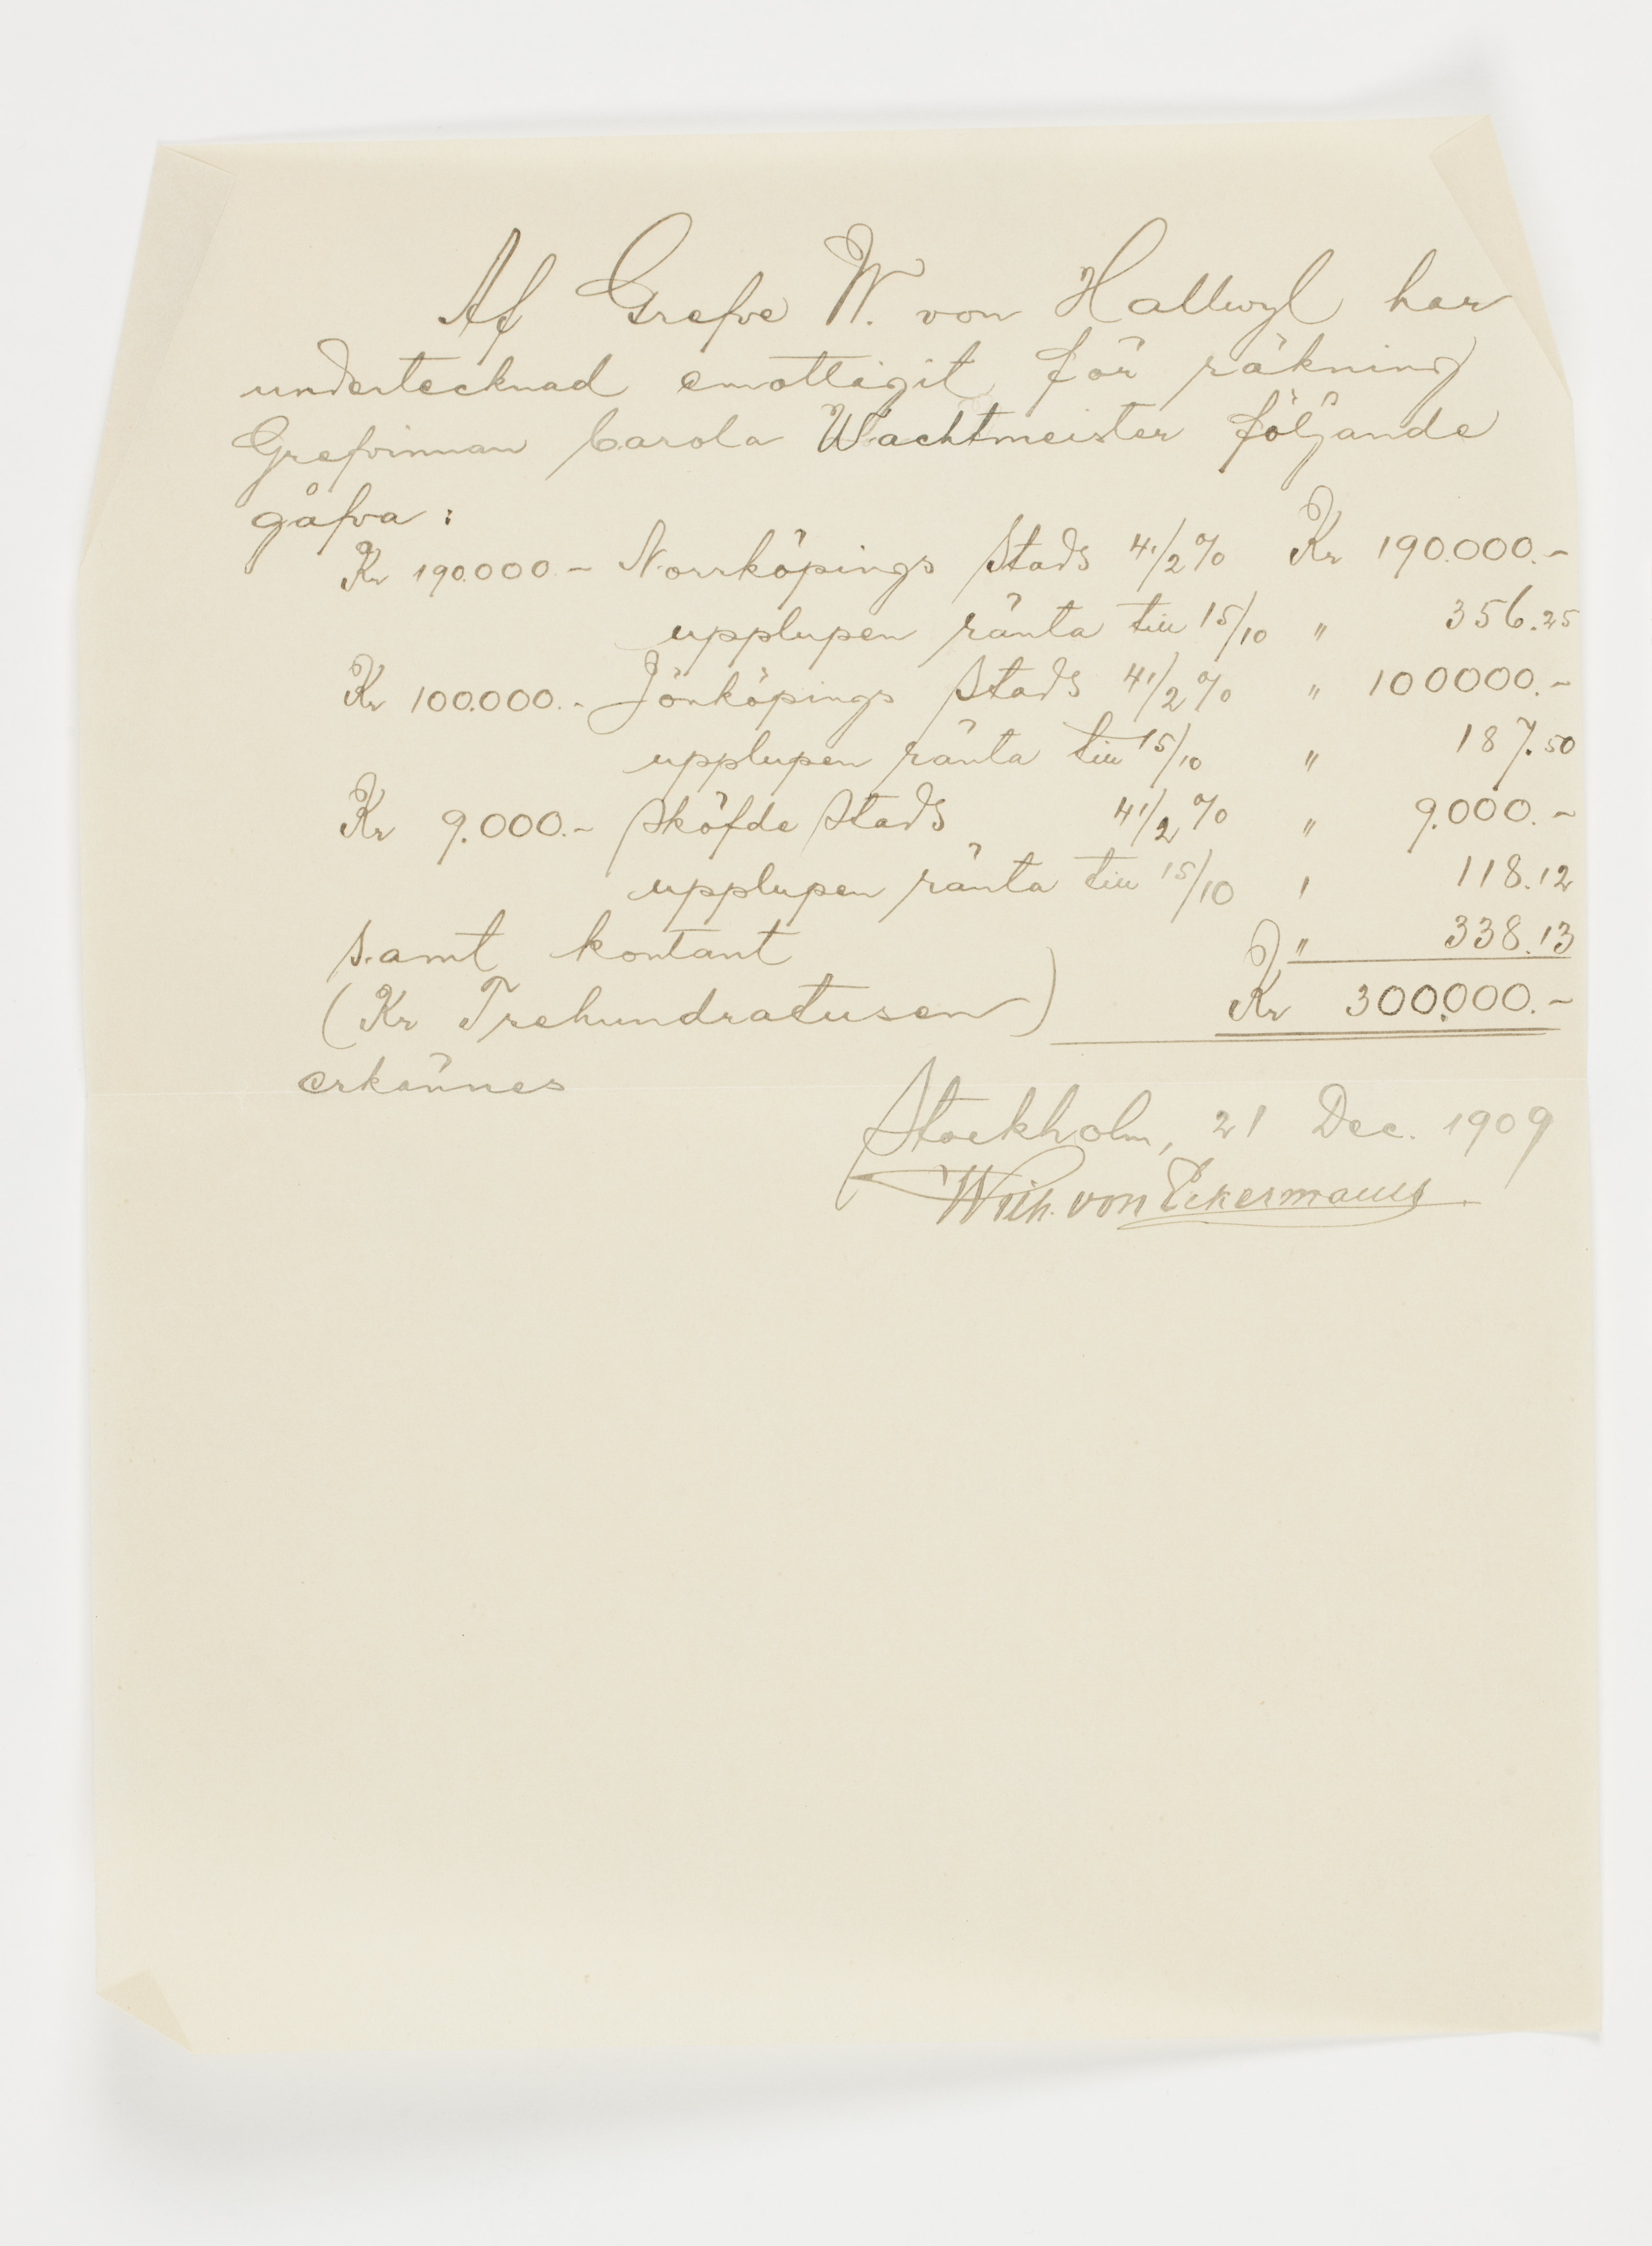 Af Grefve W. von Hallwyl har
undertecknad emottagit för räkning
Grefvinnan Carola Wachtmeister följande
gåfva:
Kr 190.000.- Norrköpings Stads 4 1/2 % Kr 190.000.-
upplupen ränta till 15/10 " 356.25
Kr 100.000.- Jönköpings Stads 4 1/2 % " 100000.-
upplupen ränta till 15/10 " 187.50
Kr 9.000.- Sköfde Stads 4 1/2 % " 9.000.-
upplupen ränta till 15/10 " 118.12
samt kontant " 338.13
(Kr Trehundratusen) Kr 300.000.-
erkännes
Stockholm, 21 Dec. 1909
Wilh. von Eckermann